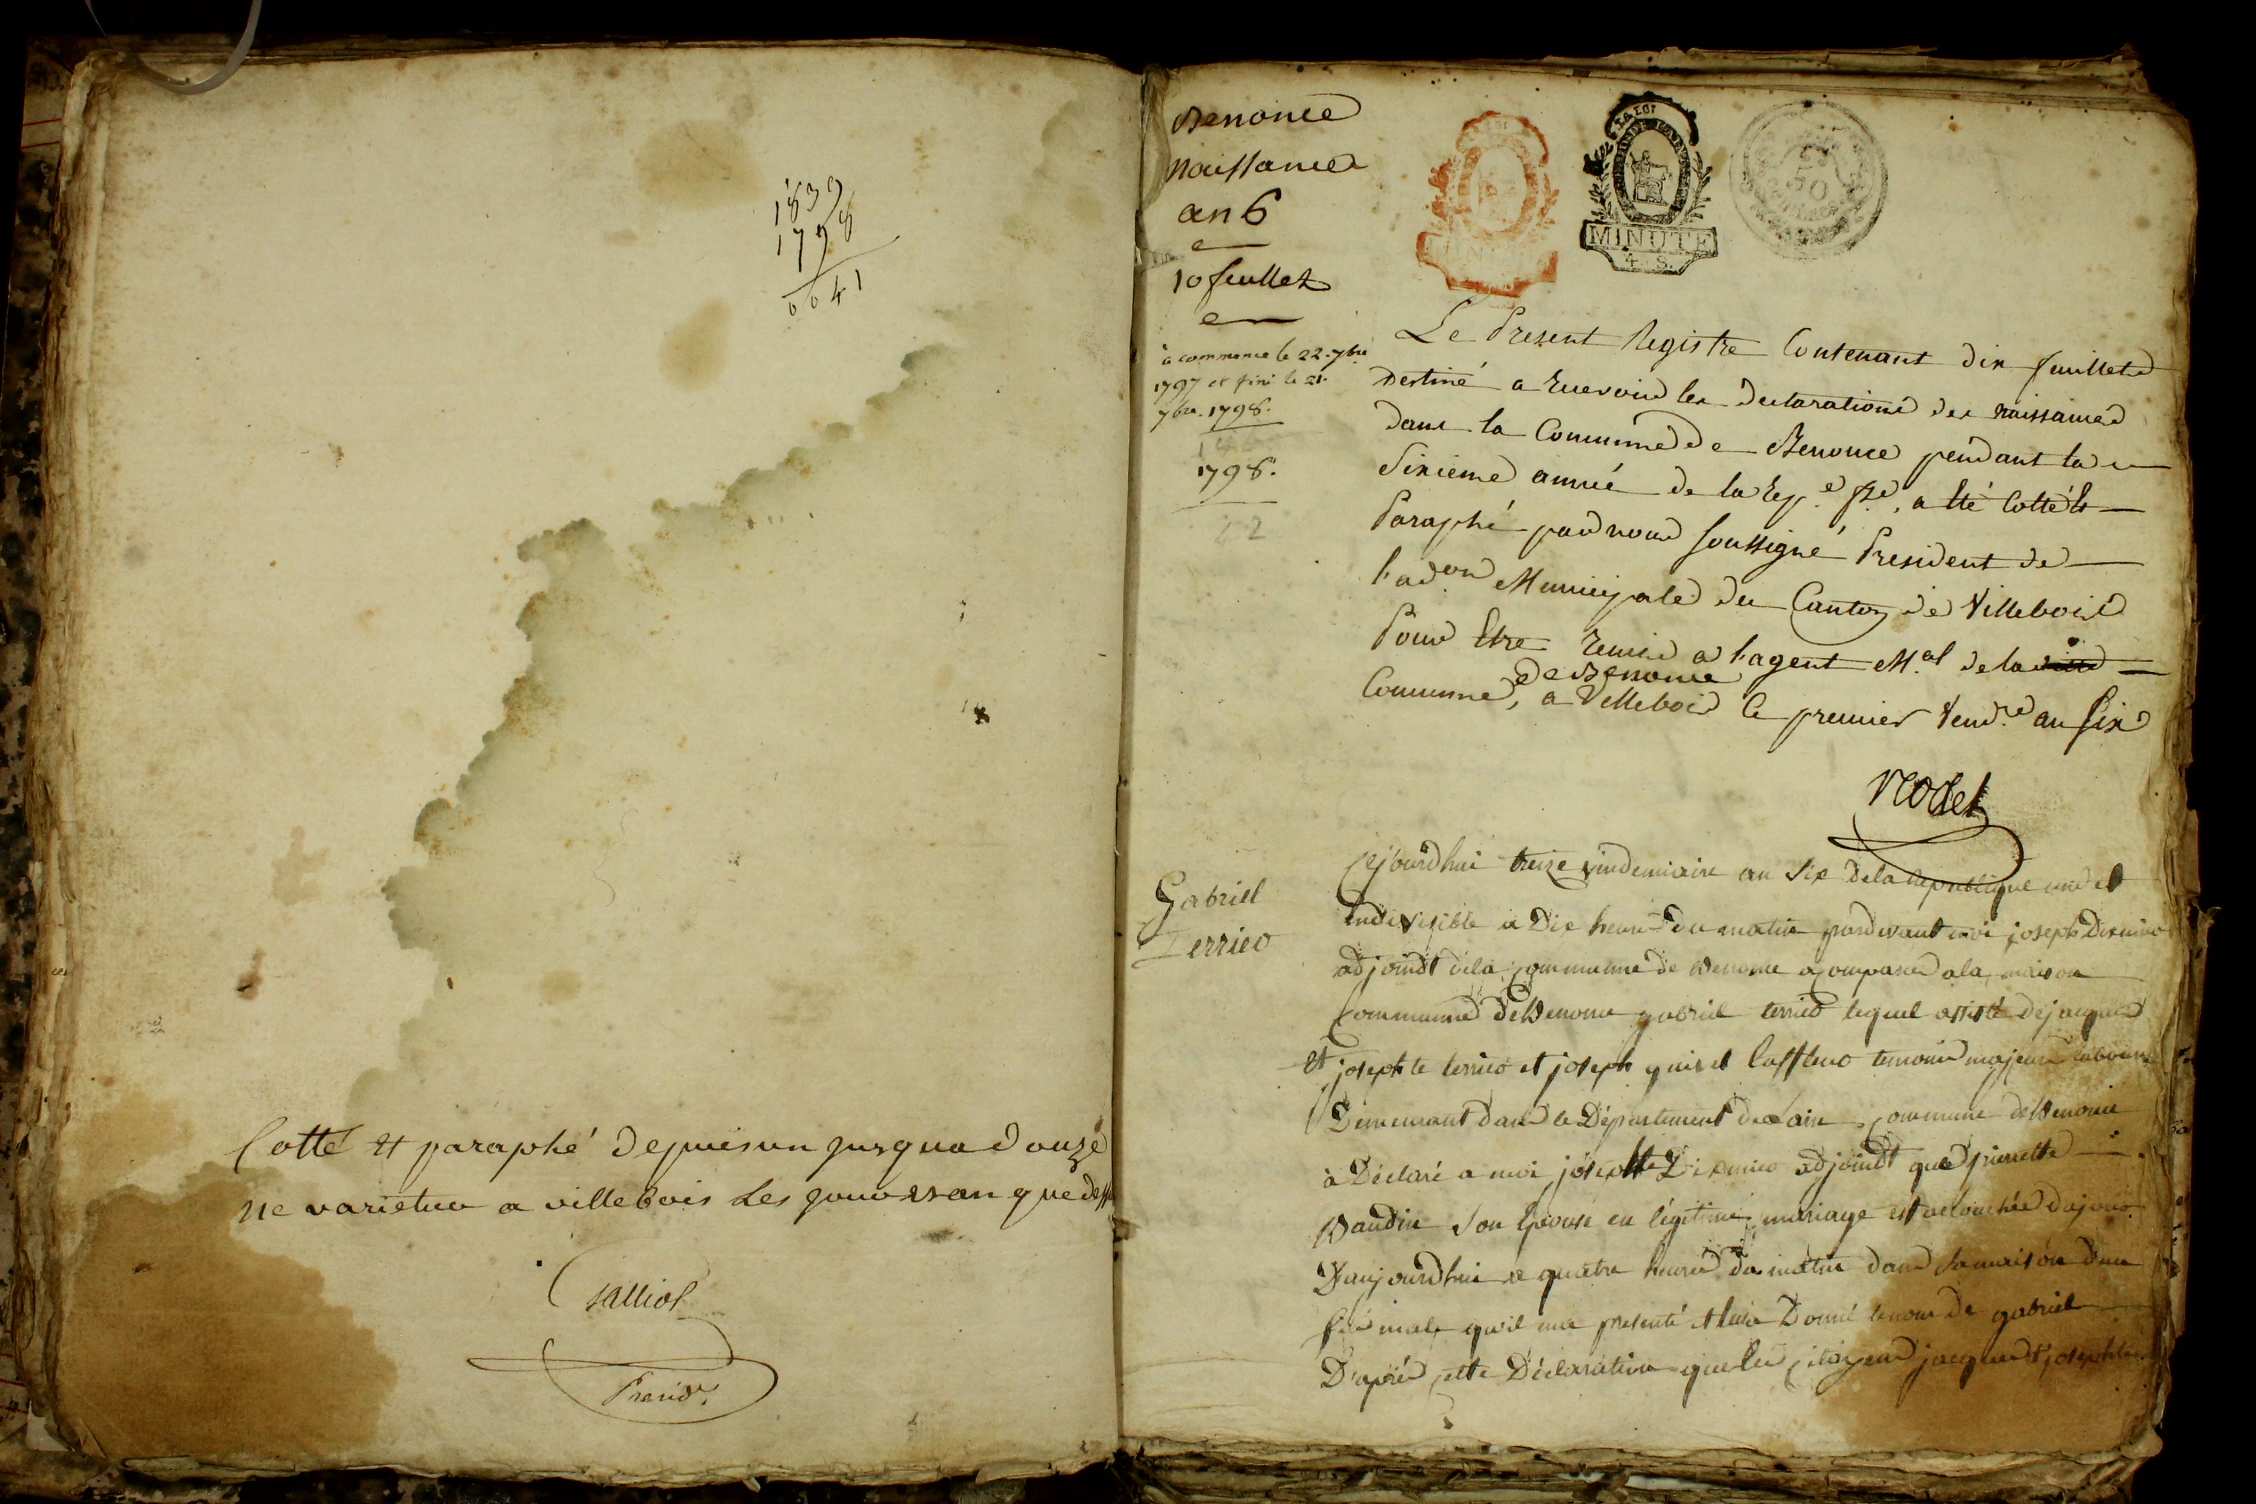 1839
1798
0041
Cotté et paraphé depuis un jusqua douze
ne varietur a villebois les jour et an que dessus
Presidt.
Benonce
naissance
an 6
10 feuillet
a commencé le 22. 7bre
1797 et fini le 21.
7bre. 1798.
1798.
42
LA LOI
MINUTE
4. S.
50
Le Present Registre Contenant dix feuillets
Destiné a recevoir les declarations des naissances
dans la Commune de Benonce pendant la
Sixieme année de la rep.e fse, a été Cotté &
Paraphé par nous soussigné President de
l'adon Municipale du Canton de Villebois
Pour Etre remis a l'agent M.al de la
de Benonce
Commune, a Villebois le premier vend.re an six
Nodet
Gabriel
Terrier
Cejourdhui treize vindemiaire an six dela republique une et
indivisible à dix heure du matin pardevant moi joseph
adjoindt dela commune de Benonce a comparu a la maison
Commune de Benonce gabriel terrier lequel assisté de jacques
et joseph te terrier et joseph temoins majeurs
Demeurant dans le Département de Lain commune de Benonce
à Déclaré a moi joseph adjoindt que pierrette
Baudin son épouse en légitime mariage est accouchée
Daujourdhui a quatre heures du matin dans sa maison dun
male quil ma presenté et lui a Donné le nom de gabriel
D'après cette Déclaration que les citoyens jacques et joseph